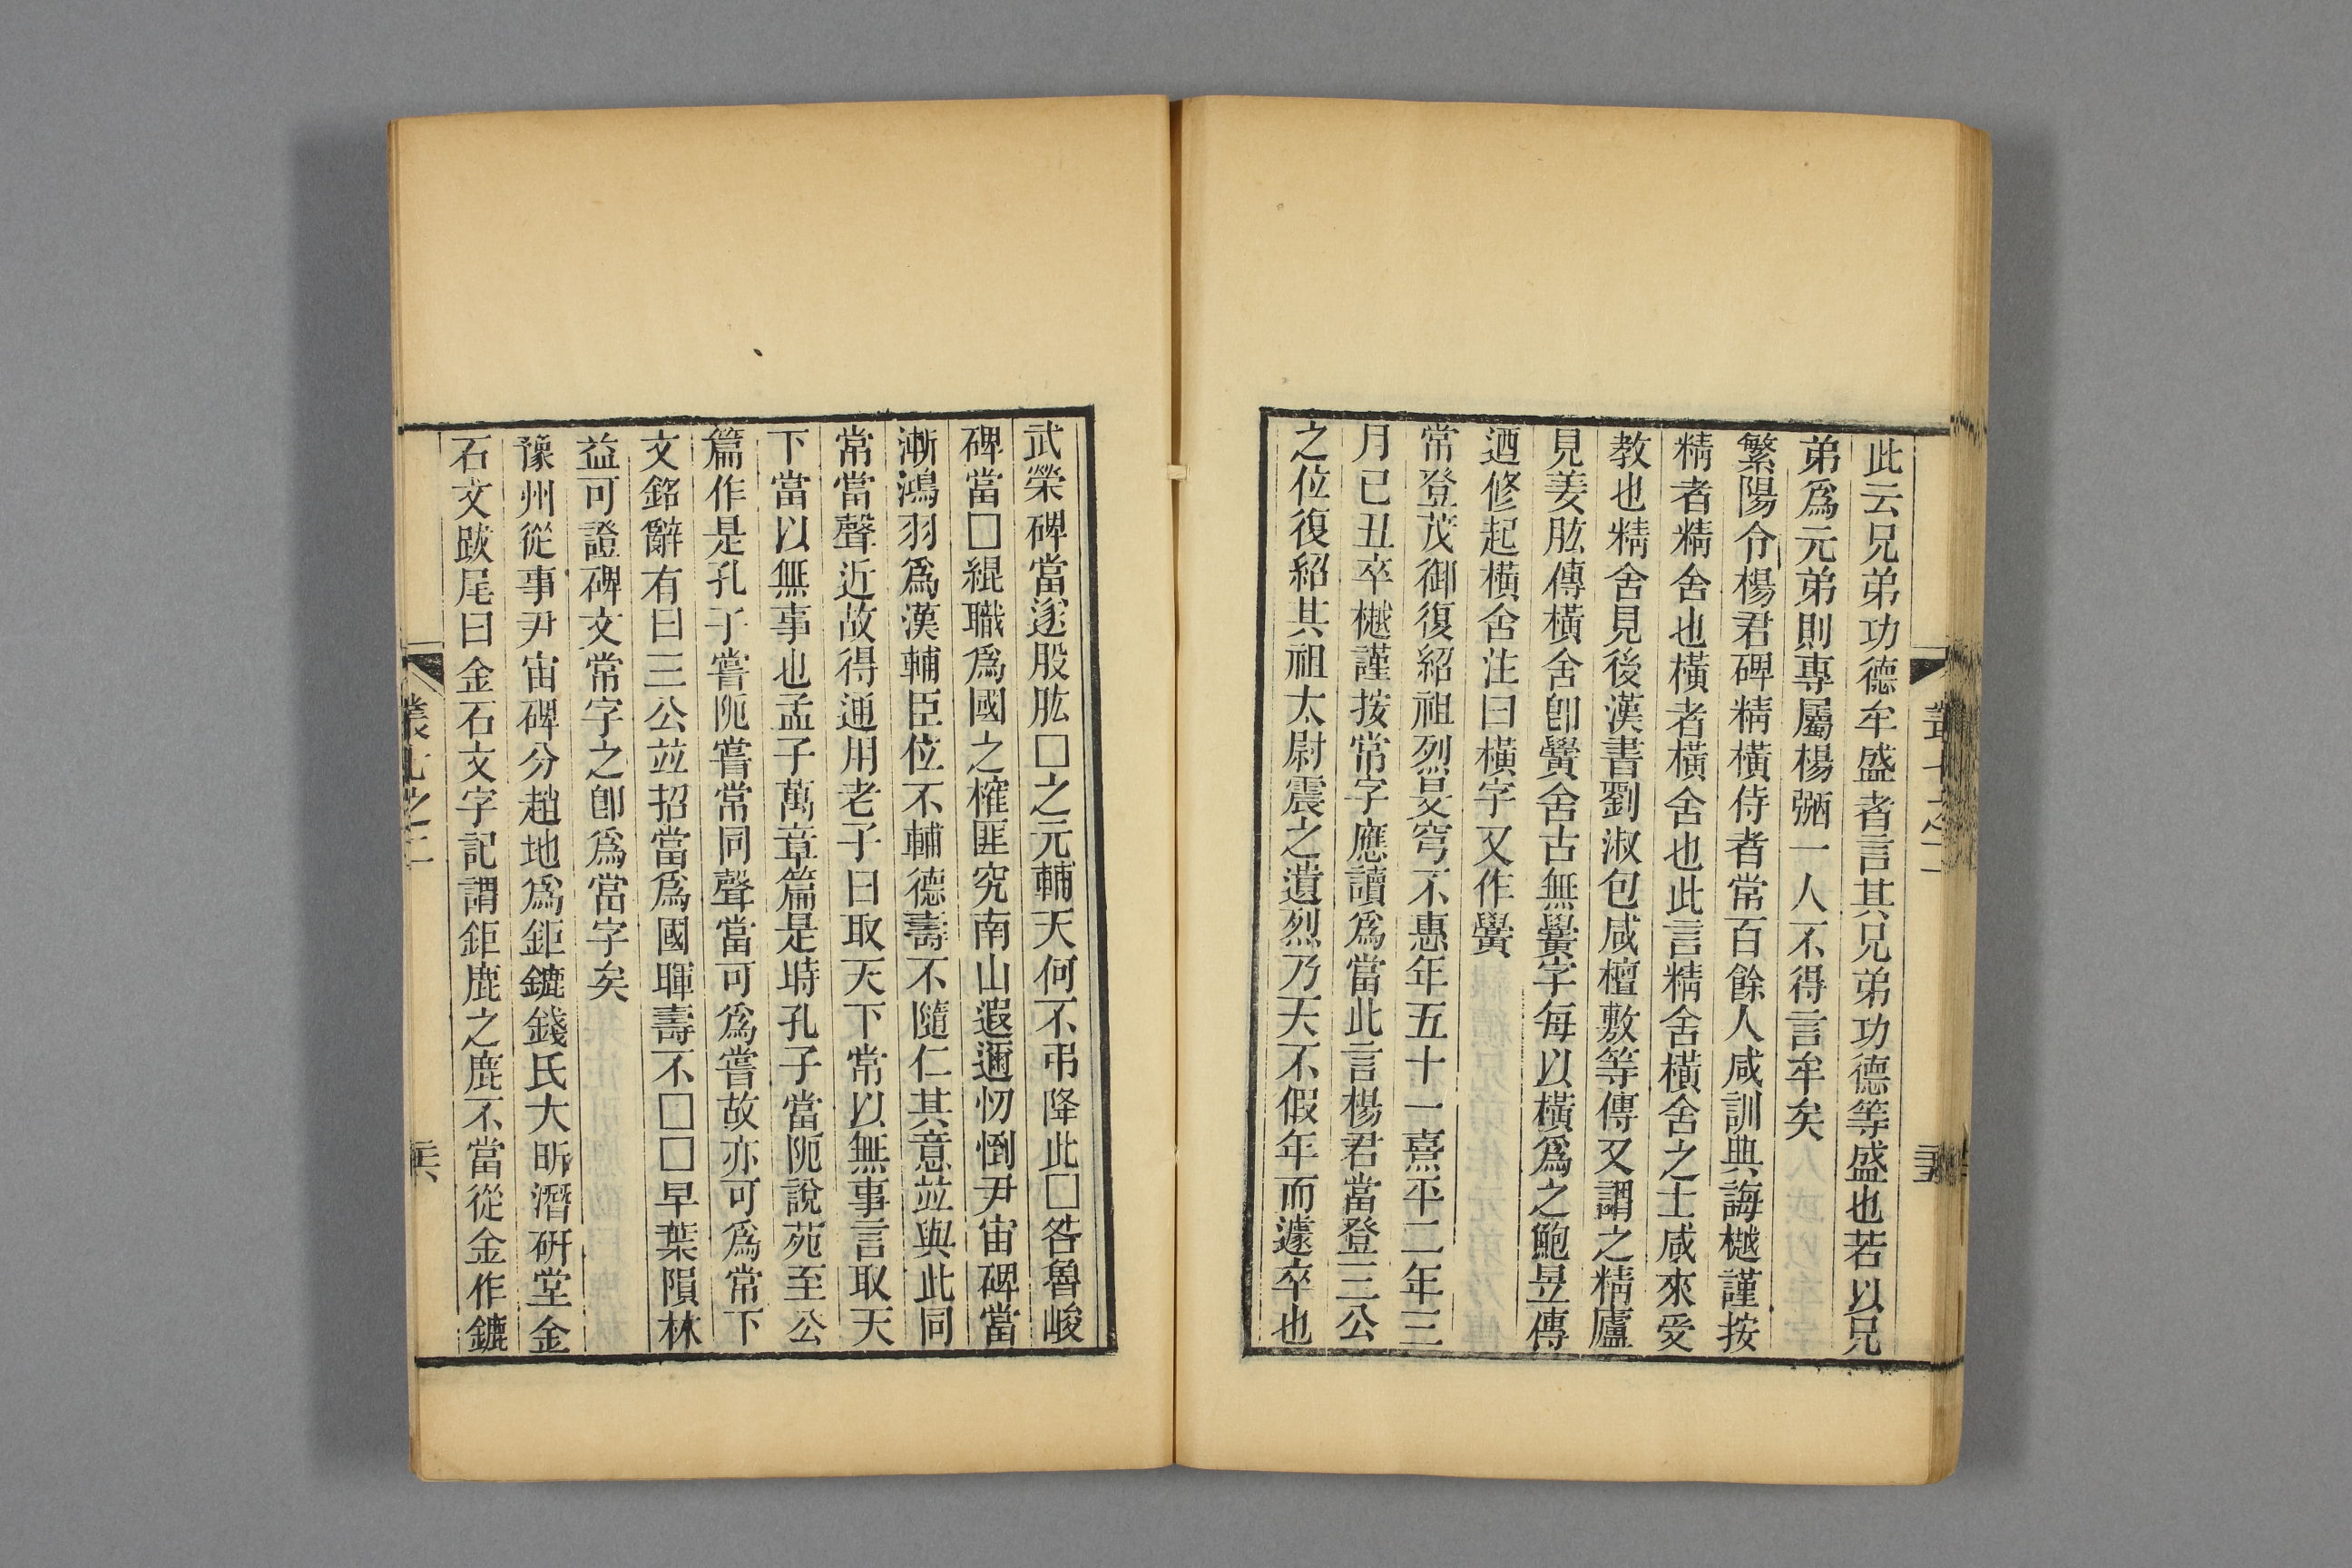 此云兄弟功德牟盛者言其兄弟功德等盛也若以兄
弟爲元弟則專屬楊弼一人不得言牟矣
繁陽令楊君碑精橫侍者常百餘人咸訓典誨樾謹按
精者精舍也橫者橫舍也此言精舍橫舍之士咸來受
教也精舍見後漢書劉淑包咸檀敷等傳又謂之精廬
見姜肱傳橫舍卽黌舍古無黌字每以橫爲之鮑昱傳
迺修起橫舍注曰橫字又作黌
常登茂御復紹祖烈旻穹不惠年五十一熹平二年三
月己丑卒樾謹按常字應讀爲當此言楊君當登三公
之位復紹其祖太尉震之遺烈乃天不假年而遽卒也
武榮碑當遂股肱□之元輔天何不弔降此□咎魯峻
碑當□緄職爲國之權匪究南山遐邇忉惻尹宙碑當
漸鴻羽爲漢輔臣位不輔德壽不隨仁其意竝與此同
常當聲近故得通用老子曰取天下常以無事言取天
下當以無事也孟子萬章篇是時孔子當阨說苑至公
篇作是孔子嘗阨嘗常同聲當可爲嘗故亦可爲常下
文銘辭有曰三公竝招當爲國暉壽不□□早葉隕林
益可證碑文常字之卽爲當字矣
豫州從事尹宙碑分趙地爲鉅鏕錢氏大昕潛硏堂金
石文跋尾曰金石文字記謂鉅鹿之鹿不當從金作鏕
叢七之二